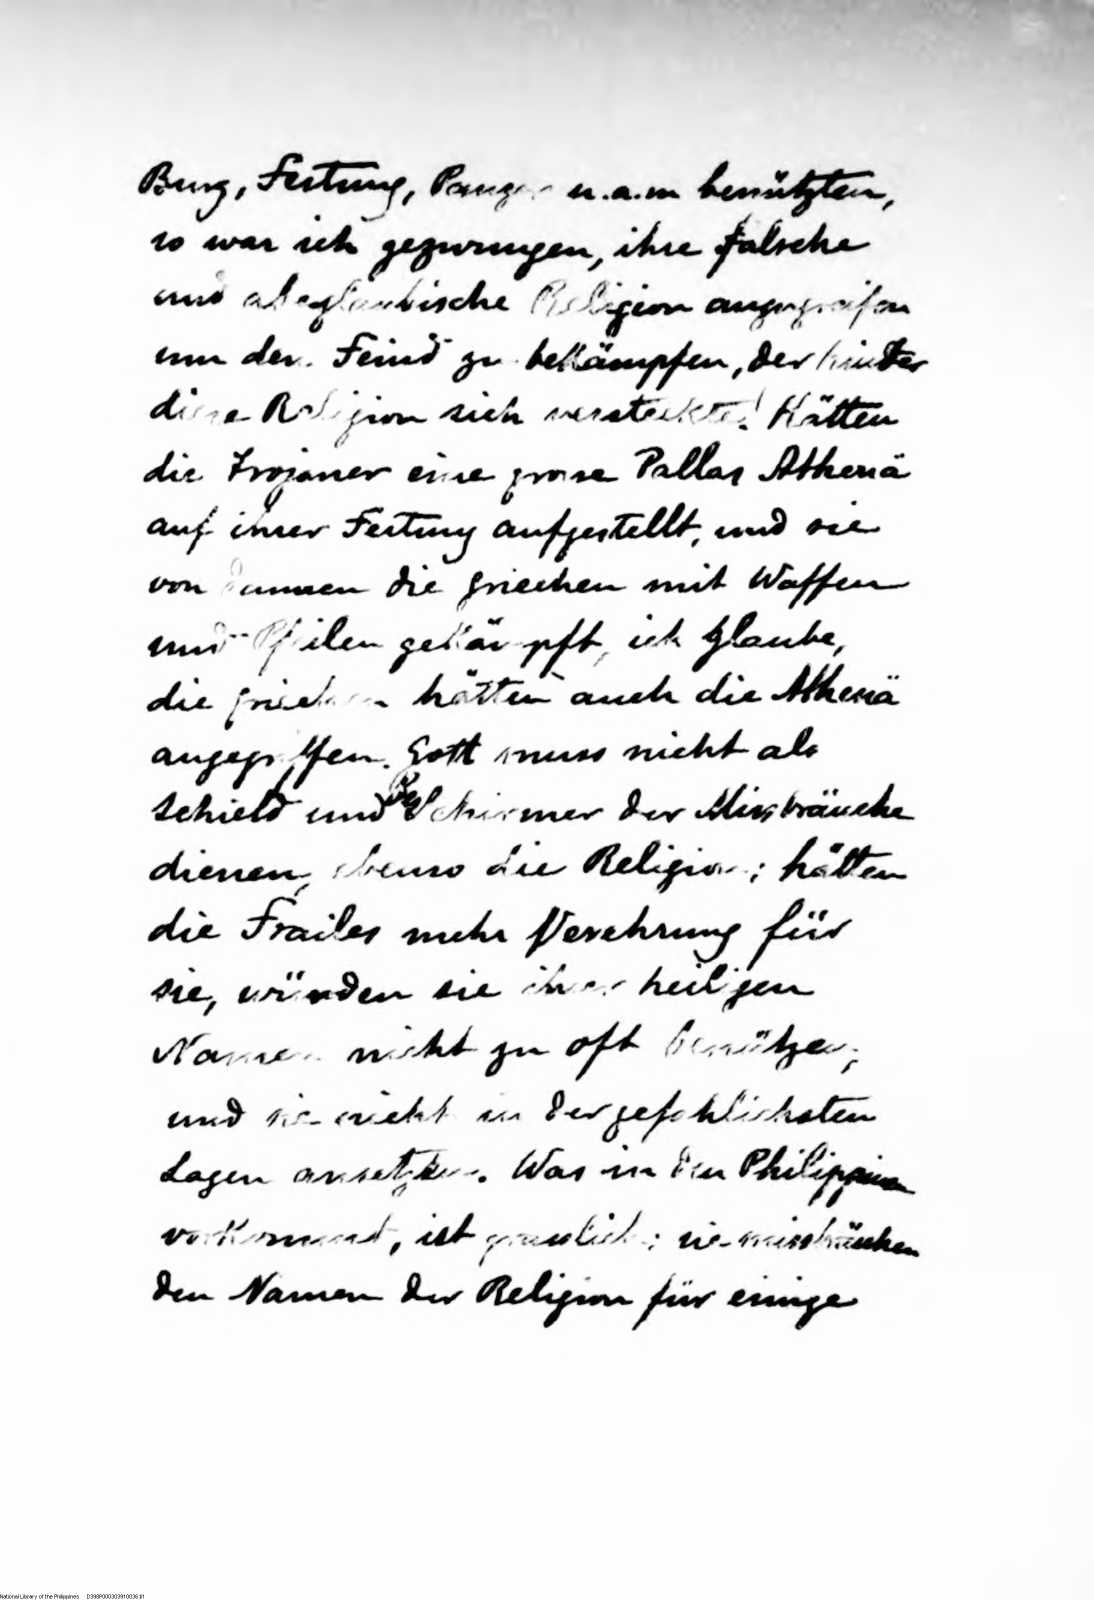 Burg, Festung, Panzer u.a.m benützten,
so war ich gezwungen, ihre falsche
und abeglaubische Religion anzugreifen
um den Feind zu bekämpfen, der hinter
diese Religion sich versteckte! Hätten
die Trojaner eine grose Pallas Athenä
auf ihrer Festung aufgestellt, und sie
von dannen die griechen mit Waffen
und Pfeilen gekämpft, ich glaube,
die griechen hätten auch die Athenä
angegriffen. Gott muss nicht als
Schield und Beschirmer der Missbräuche
dienen, ebenso die Religion; hätten
die Frailes mehr Verehrung für
sie, würden sie ihren heiligen
Namen nicht zu oft benützen,
und sie nicht in der gefahlichsten
Lagen ansetzen. Was in den Philippinen
vorkommt, ist grauslich; sie missbräuchen
den Namen der Religion für einige
National Library of the Philippines